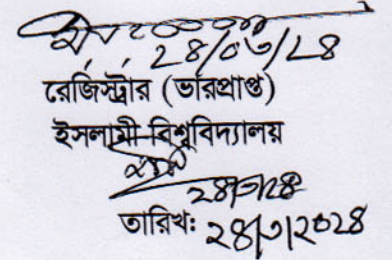 ২৪/০৩/২৪
রেজিস্ট্রার (ভারপ্রাপ্ত)
ইসলামী বিশ্ববিদ্যালয়
২৪/৩/২৪
তারিখঃ ২৪/৩/২০২৪